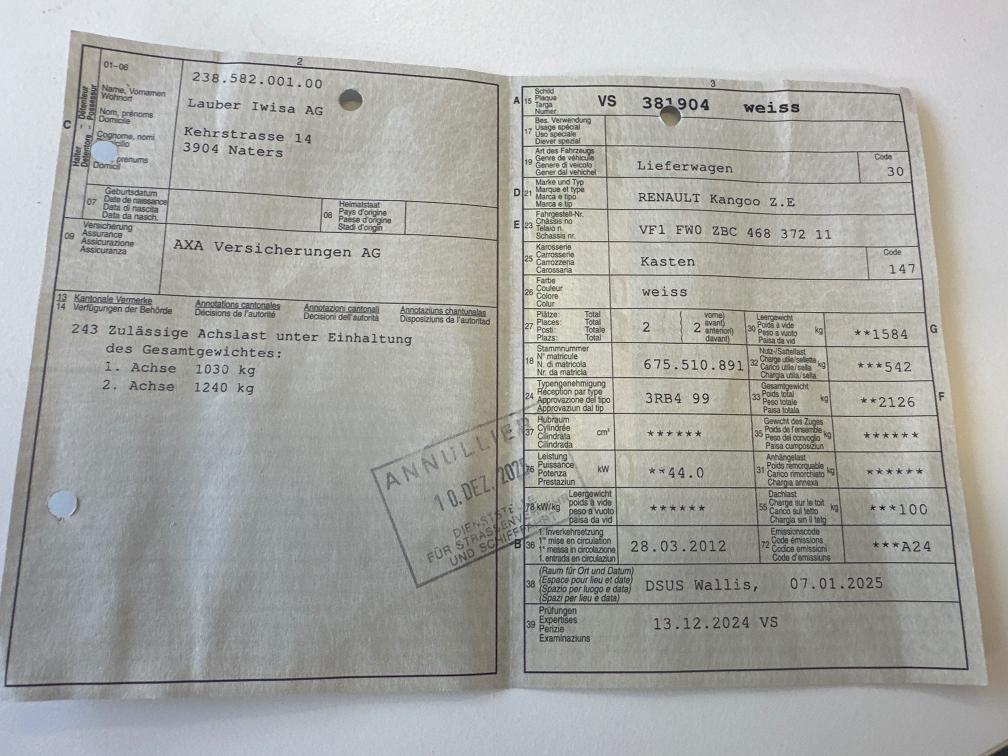 2
01-06
Name, Vornamen
Wohnort
Nom, prénoms
Domicile
Cognome, nomi
prenums
Domicil
C
Halter - Détenteur
Detentore - Possessur
238.582.001.00
Lauber Iwisa AG
Kehrstrasse 14
3904 Naters
07
Geburtsdatum
Date de naissance
Data di nascita
Data da nasch.
08
Heimatstaat
Pays d'origine
Paese d'origine
Stadi d'origin
09
Versicherung
Assurance
Assicurazione
Assicuranza
AXA Versicherungen AG
13 Kantonale Vermerke Annotations cantonales Annotazioni cantonali Annotaziuns chantunalas
14 Verfügungen der Behörde Décisions de l'autorité Decisioni dell'autorità Disposiziuns da l'autoritad
243 Zulässige Achslast unter Einhaltung
des Gesamtgewichtes:
1. Achse 1030 kg
2. Achse 1240 kg
ANNULLIER
10. DEZ. 202
DIENSTSTE
FÜR STRASSENVER
UND SCHIFFFAHRT
3
A 15
Schild
Plaque
Targa
Numer
VS 381904 weiss
17
Bes. Verwendung
Usage spécial
Uso speciale
Diever spezial
19
Art des Fahrzeugs
Genre de véhicule
Genere di veicolo
Gener dal vehichel
Lieferwagen
Code
30
D 21
Marke und Typ
Marque et type
Marca e tipo
Marca e tip
RENAULT Kangoo Z.E
E 23
Fahrgestell-Nr.
Châssis no
Telaio n.
Schassis nr.
VF1 FW0 ZBC 468 372 11
25
Karosserie
Carrosserie
Carrozzeria
Carossaria
Kasten
Code
147
26
Farbe
Couleur
Colore
Colur
weiss
27
Plätze: Total
Places: Total
Posti: Totale
Plazs: Totale
2
2
vorne)
avant)
anteriori)
davant)
30
Leergewicht
Poids à vide
Peso a vuoto
Paisa da vid
kg
**1584
G
18
Stammnummer
N° matricule
N. di matricola
Nr. da matricla
675.510.891
32
Nutz-/Sattellast
Charge utile/sellette
Carico utile/sella
Chargia utila/sella
kg
***542
24
Typengenehmigung
Réception par type
Approvazione del tipo
Approvaziun dal tip
3RB4 99
33
Gesamtgewicht
Poids total
Peso totale
Paisa totala
kg
**2126
F
37
Hubraum
Cylindrée
Cilindrata
Cilindrada
cm³
******
35
Gewicht des Zuges
Poids de l'ensemble
Peso del convoglio
Paisa cumposiziun
kg
******
76
Leistung
Puissance
Potenza
Prestaziun
kW
**44.0
31
Anhängelast
Poids remorquable
Carico rimorchiato
Chargia annexa
kg
******
78 kW/kg
Leergewicht
poids à vide
peso a vuoto
paisa da vid
******
55
Dachlast
Charge sur le toit
Carico sul tetto
Chargia sin il tetg
kg
***100
B 36
1. Inverkehrsetzung
1re mise en circulation
1a messa in circolazione
1. entrada en circulaziun
28.03.2012
72
Emissionscode
Code émissions
Codice emissioni
Code d'emissiuns
***A24
38
(Raum für Ort und Datum)
(Espace pour lieu et date)
(Spazio per luogo e data)
(Spazi per lieu e data)
DSUS Wallis, 07.01.2025
39
Prüfungen
Expertises
Perizie
Examinaziuns
13.12.2024 VS